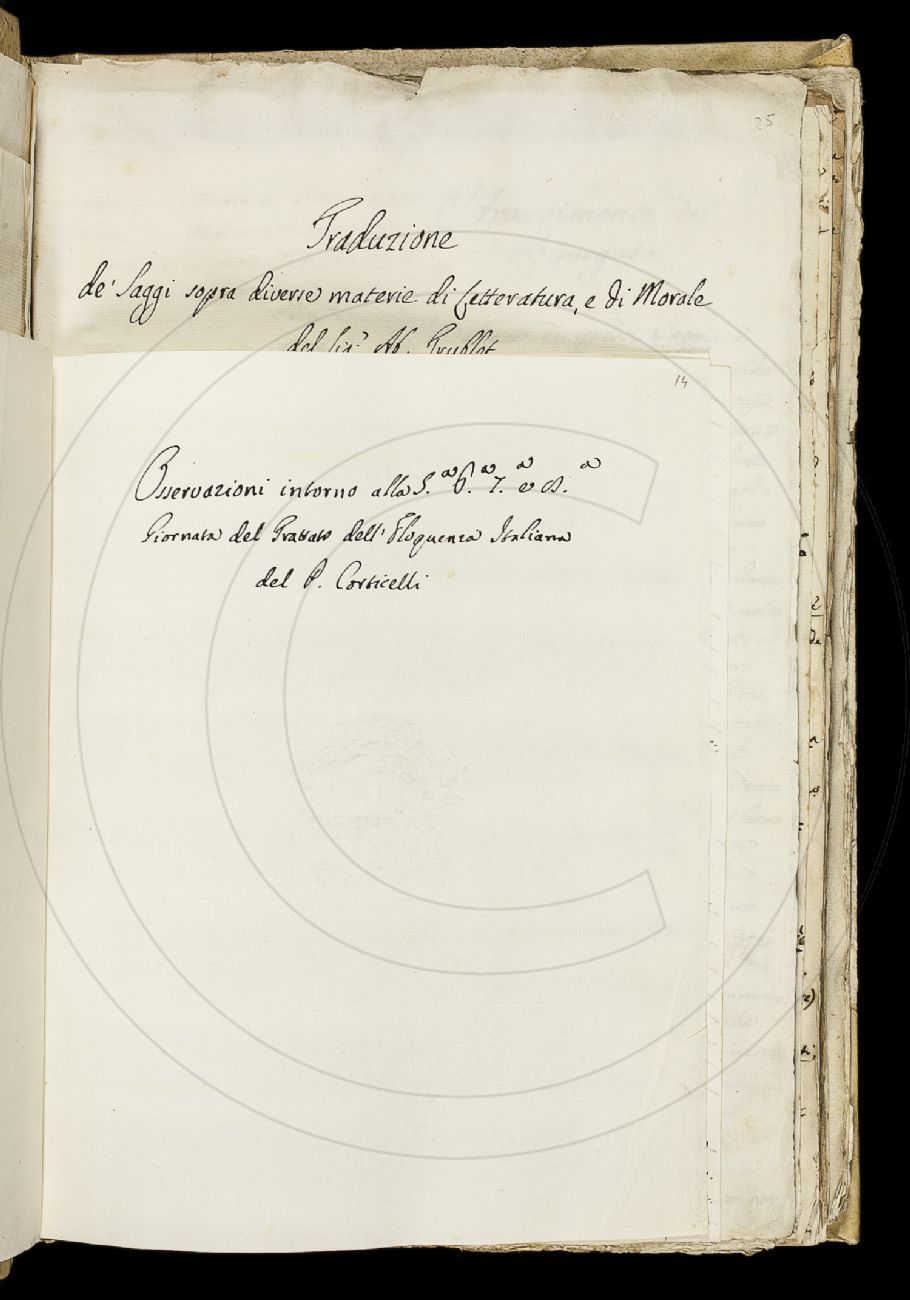 25
Traduzione
de' Saggi sopra diverse materie di Letteratura, e di Morale
del Sig.r Ab. Trublet
14
Osservazioni intorno alla 5.a 6.a 7.a e 8.a
Giornata del Trattato dell' Eloquenza Italiana
del P. Corticelli